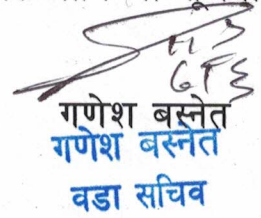 गणेश बस्नेत
गणेश बस्नेत
वडा सचिव